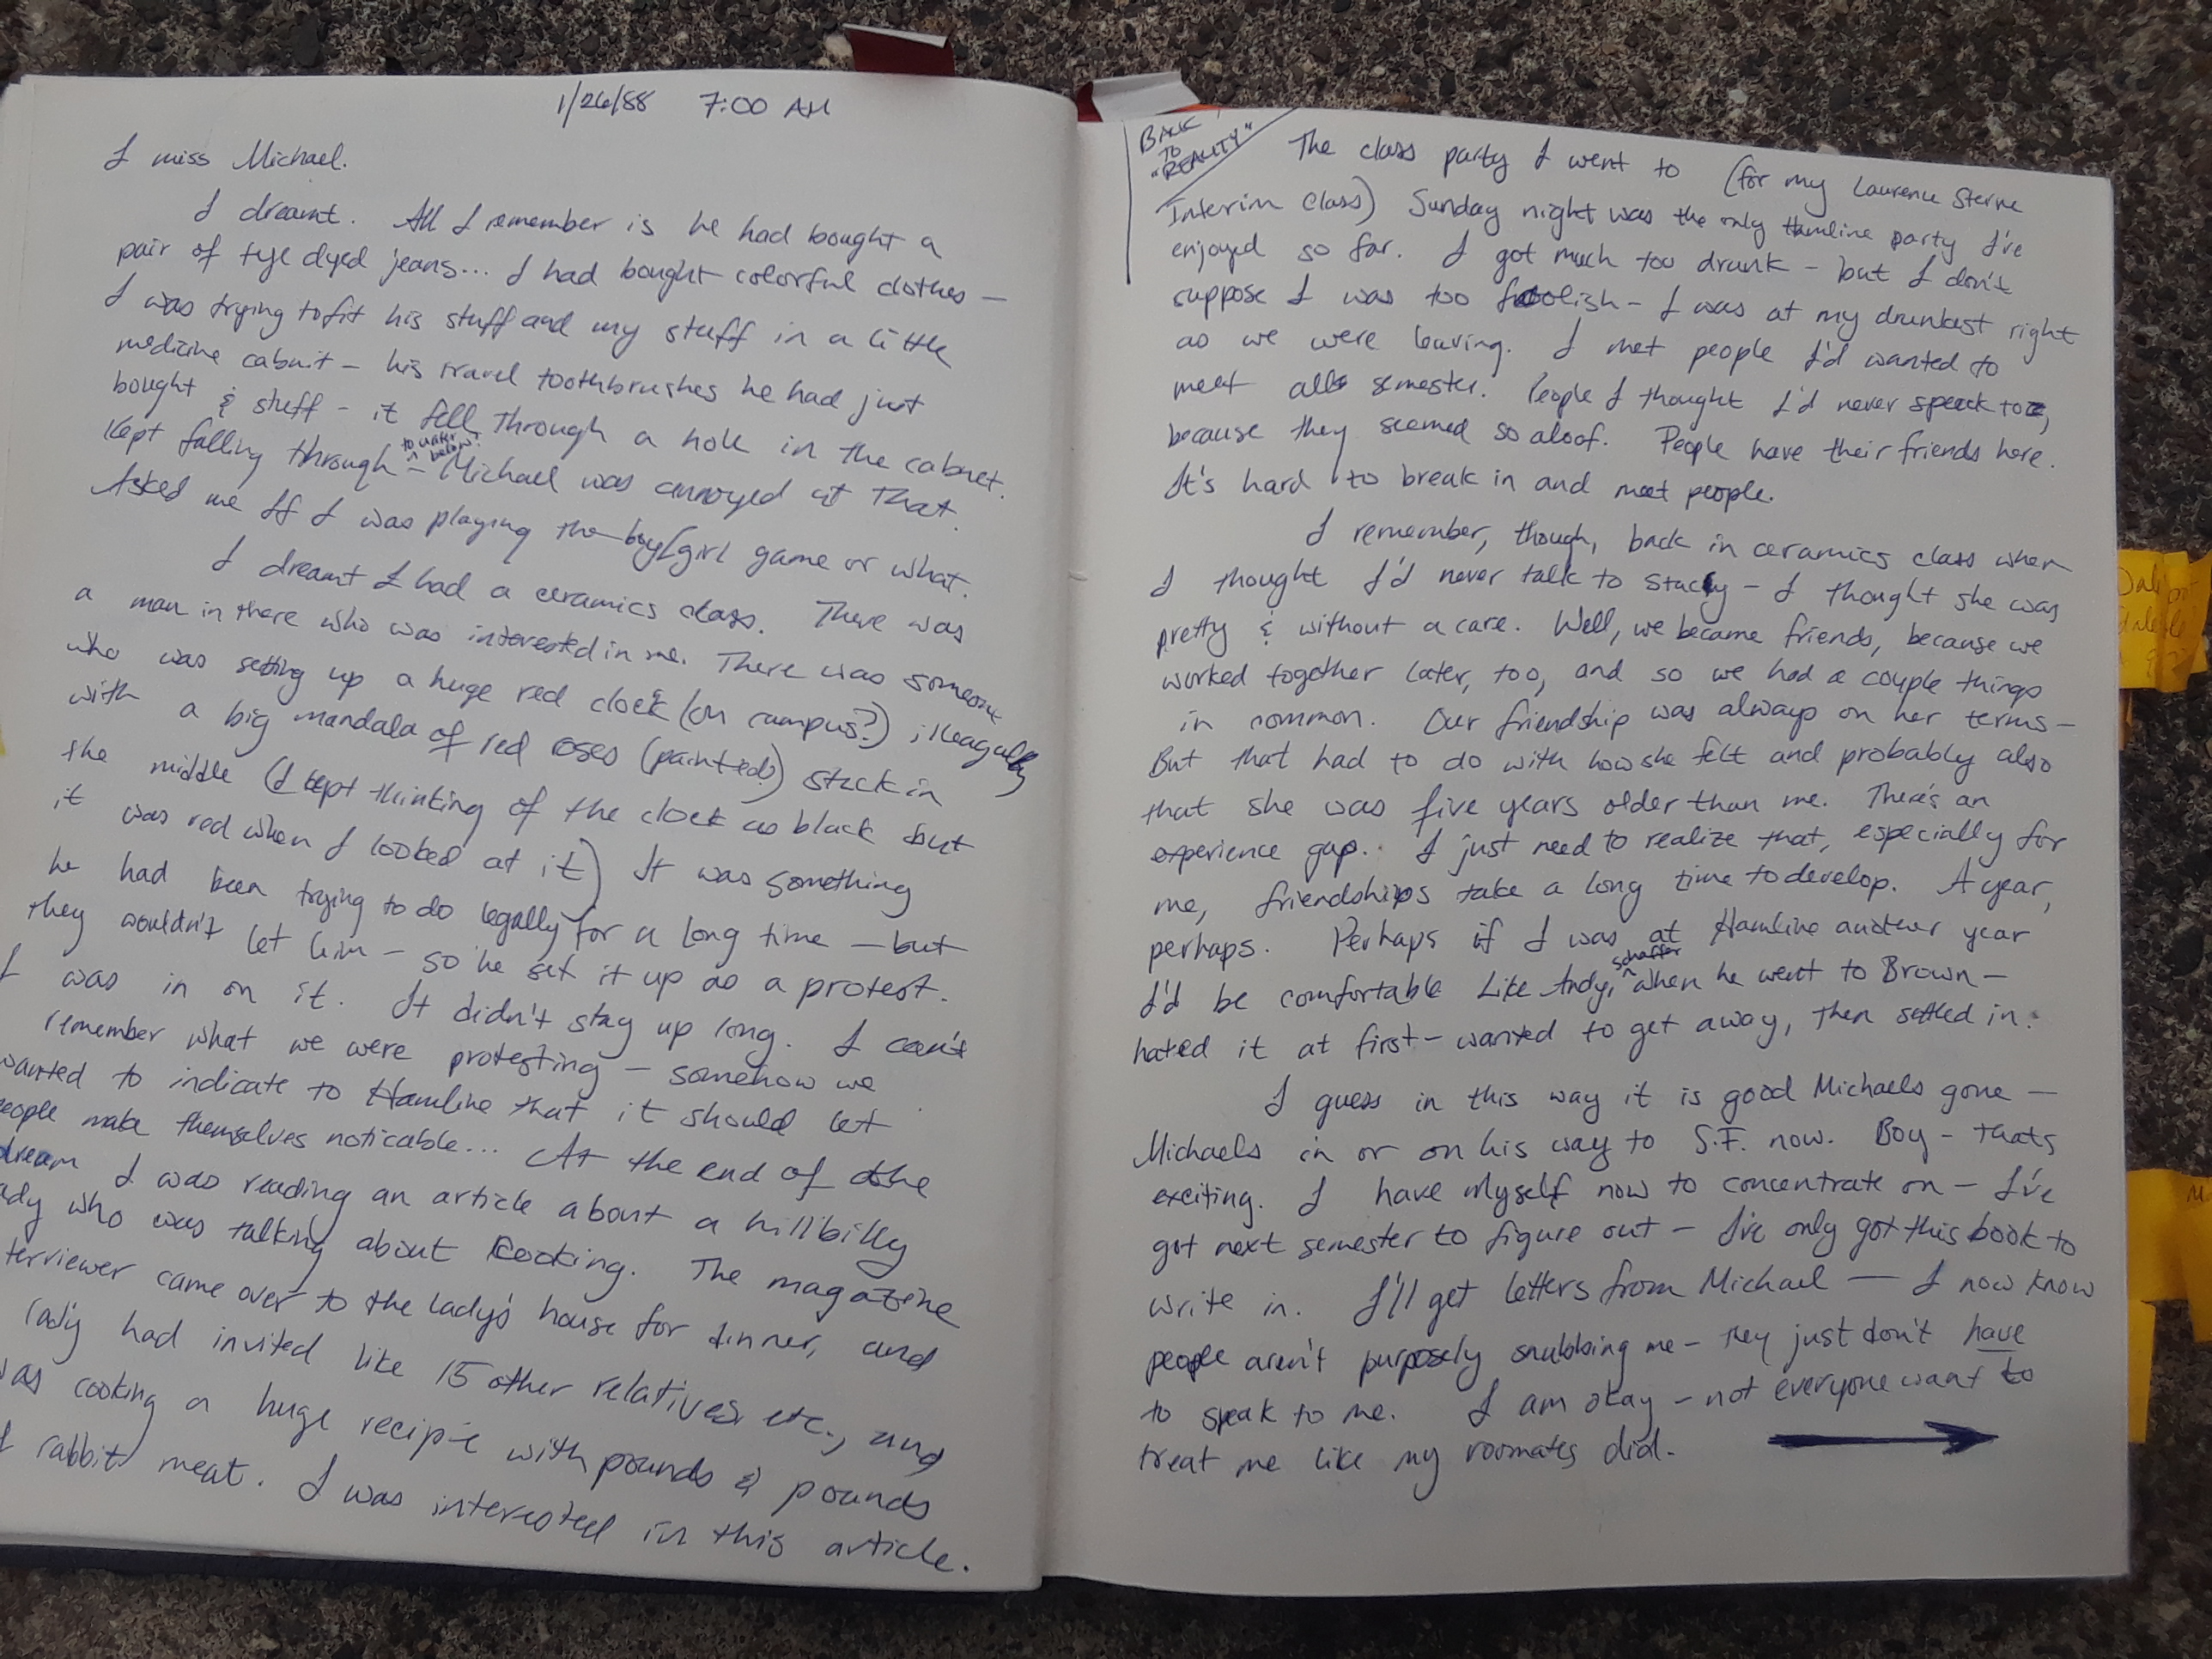 1/26/88 7:00 AM
I miss Michael.
I dreamt. All I remember is he had bought a
pair of tye dyed jeans... I had bought colorful clothes —
I was trying to fit his stuff and my stuff in a little
medicine cabnit – his travel toothbrushes he had just
bought & stuff – it fell through a hole in the cabnet.
Kept falling through to water below! – Michael was annoyed at that.
Asked me If I was playing the boy/girl game or what.
I dreamt I had a ceramics class. There was
a man in there who was interested in me. There was someone
who was setting up a huge red clock (on campus?) illeagally
with a big mandala of red roses (painted?) stuck in
the middle (I kept thinking of the clock as black but
it was red when I looked at it) It was something
he had been trying to do legally for a long time – but
they wouldn't let him – so he set it up as a protest.
I was in on it. It didn't stay up long. I can't
remember what we were protesting – somehow we
wanted to indicate to Hamline that it should let
people make themselves noticable... At the end of the
dream I was reading an article about a hillbilly
lady who was talking about Cooking. The magazine
terviewer came over to the lady's house for dinner, and
lady had invited like 15 other relatives etc., and
was cooking a huge recipie with pounds & pounds
of rabbit meat. I was interested in this article.
BACK
TO
"REALITY"
The class party I went to (for my Laurence Sterne
Interim Class) Sunday night was the only Hamline party I've
enjoyed so far. I got much too drunk – but I don't
suppose I was too foolish – I was at my drunkest right
as we were leaving. I met people I'd wanted to
meet all semester. People I thought I'd never speak to,
because they seemed so aloof. People have their friends here.
It's hard to break in and meet people.
I remember, though, back in ceramics class when
I thought I'd never talk to Stacy – I thought she was
pretty & without a care. Well, we became friends, because we
worked together later, too, and so we had a couple things
in common. Our friendship was always on her terms –
But that had to do with how she felt and probably also
that she was five years older than me. There's an
experience gap. I just need to realize that, especially for
me, friendships take a long time to develop. A year,
perhaps. Perhaps if I was at Hamline another year
I'd be comfortable Like Andy Schaffer, when he went to Brown –
hated it at first – wanted to get away, then settled in.
I guess in this way it is good Michaels gone –
Michaels in or on his way to S.F. now. Boy – thats
exciting. I have Myself now to concentrate on – I've
got next semester to figure out – I've only got this book to
write in. I'll get letters from Michael — I now know
people aren't purposely snubbing me – they just don't have
to speak to me. I am okay – not everyone want to
treat me like my roomates did.